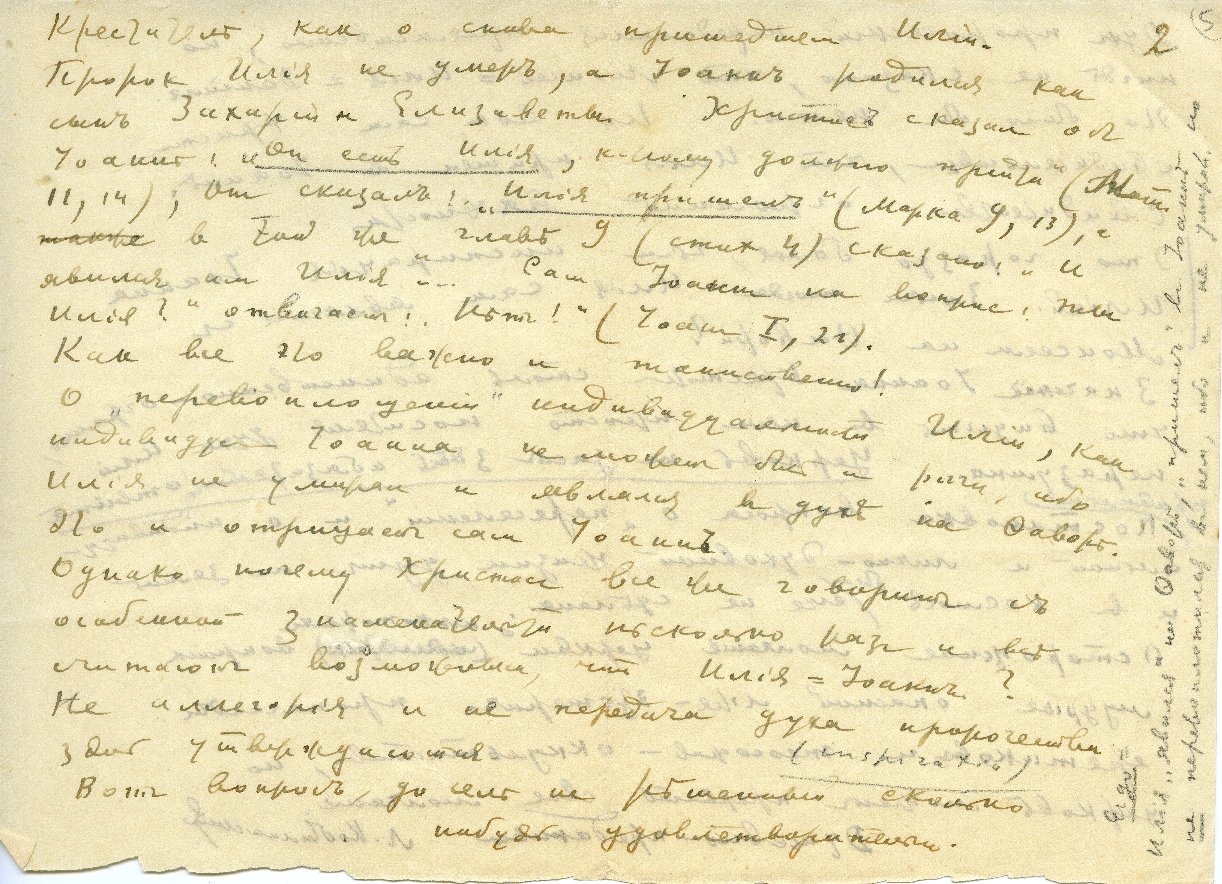 2
5
Креститель, как о снова пришедшем Иліи.
Пророк Илія не умеръ, а Іоаннъ родился как
сынъ Захаріи и Елизаветы. Христосъ сказал об
Іоаннѣ: „Он есть Илія, которому должно прійти" (Матѳ.
11, 14); Он сказалъ: „Илія пришелъ" (Марка 9, 13), а
также в той же главѣ 9 (стих 4) сказано: „И
явился им Илія"... Сам Іоанн на вопрос: „ты
Илія?" отвѣчает: „Нѣтъ!" (Іоан. I, 21).
Как все это важно и таинственно!
О „перевоплощеніи" индивидуальности Иліи, как
индивидуума Іоанна не может быть и рѣчи, ибо
Илія не умирал и являлся в духѣ на Ѳаворѣ.
Это и отрицаетъ сам Іоаннъ
Однако почему Христос все же говоритъ съ
особенной значительностью нѣсколько раз и всѣ
считаютъ возможным, что Илія = Іоаннъ?
Не аллегорія и не передача духа пророчества
здѣсь утверждается (inspiratio)
Вотъ вопросъ, доселѣ не рѣшенный сколько
нибудь удовлетворительно.
Илія „явился на Ѳаворѣ", „пришелъ" въ Іоаннѣ
не перевоплотился в нем, ибо и не умирал, но